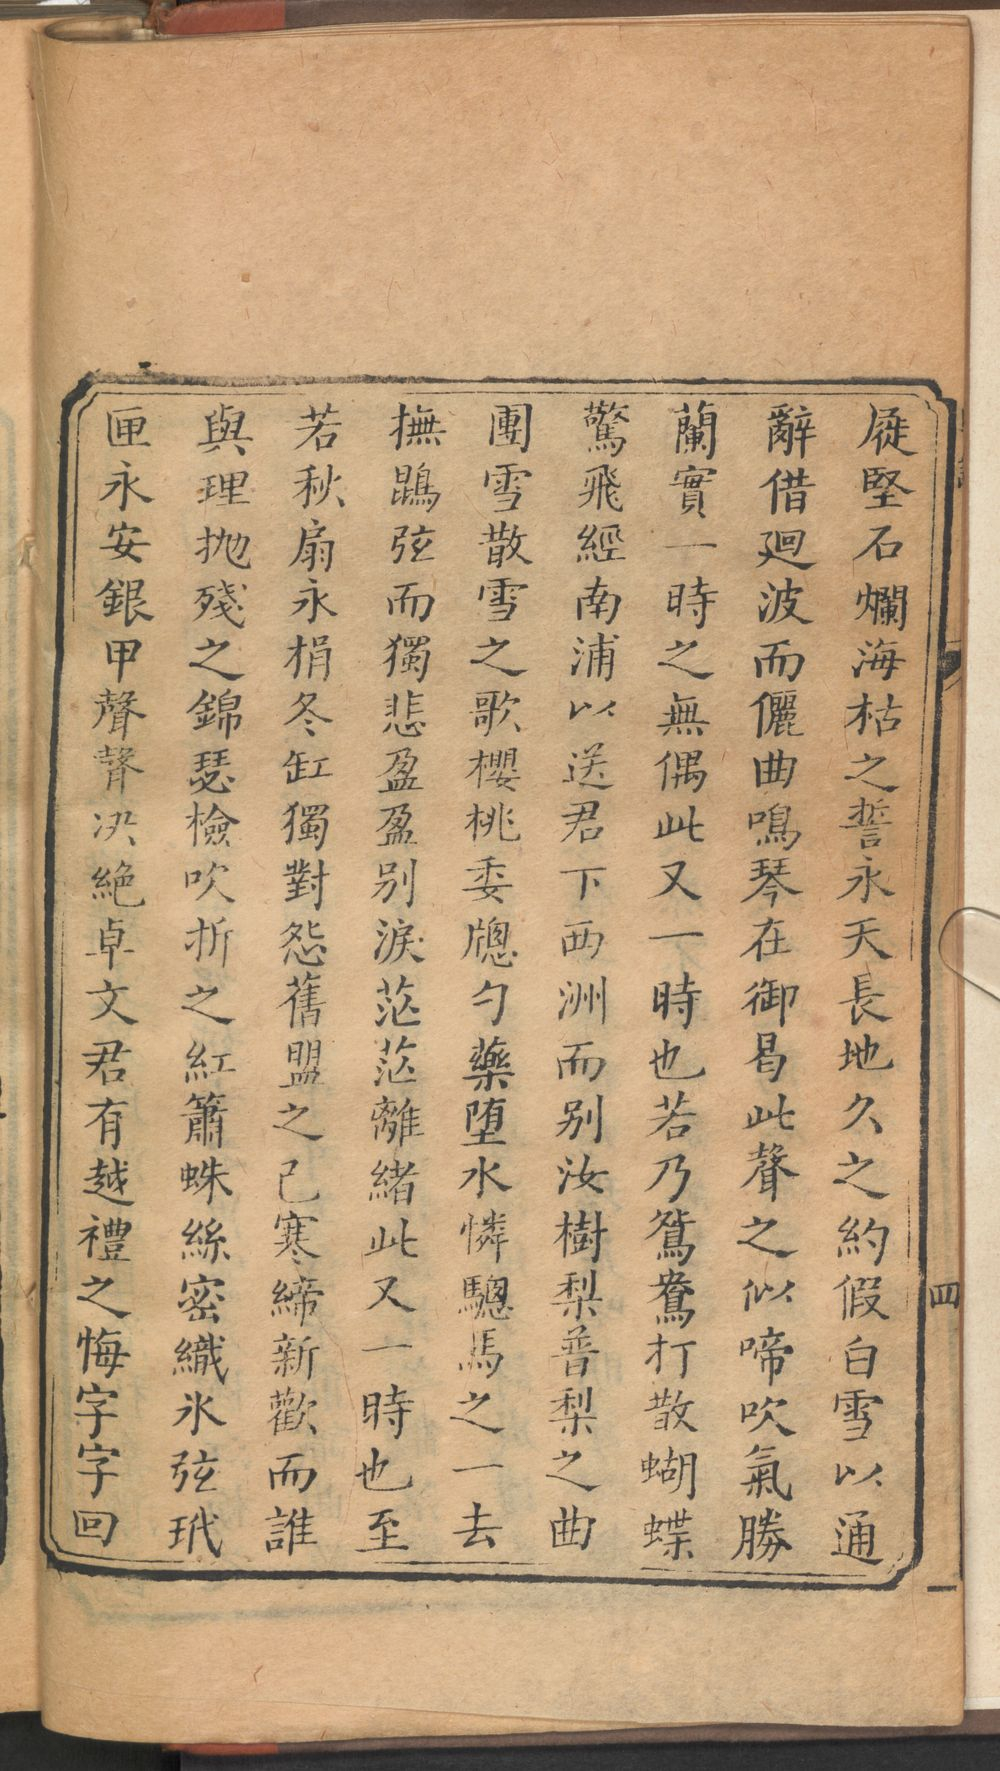 屣堅石爛海枯之誓永天長地久之約假白雪以通
辭借廻波而儷曲鳴琴在御曷此聲之似啼吹氣勝
蘭實一時之無偶此又一時也若乃鴛鴦打散蝴蝶
驚飛經南浦以送君下西洲而别汝樹梨普梨之曲
團雪散雪之歌櫻桃委牕勺藥堕水憐驄馬之一去
撫鵾弦而獨悲盈盈别淚茫茫離緒此又一時也至
若秋扇永捐冬缸獨對怨舊盟之已寒締新歡而誰
與理拋殘之錦瑟檢吹折之紅簫蛛絲密織氷弦玳
匣永安銀甲聲聲决絶卓文君有越禮之悔字字回
四